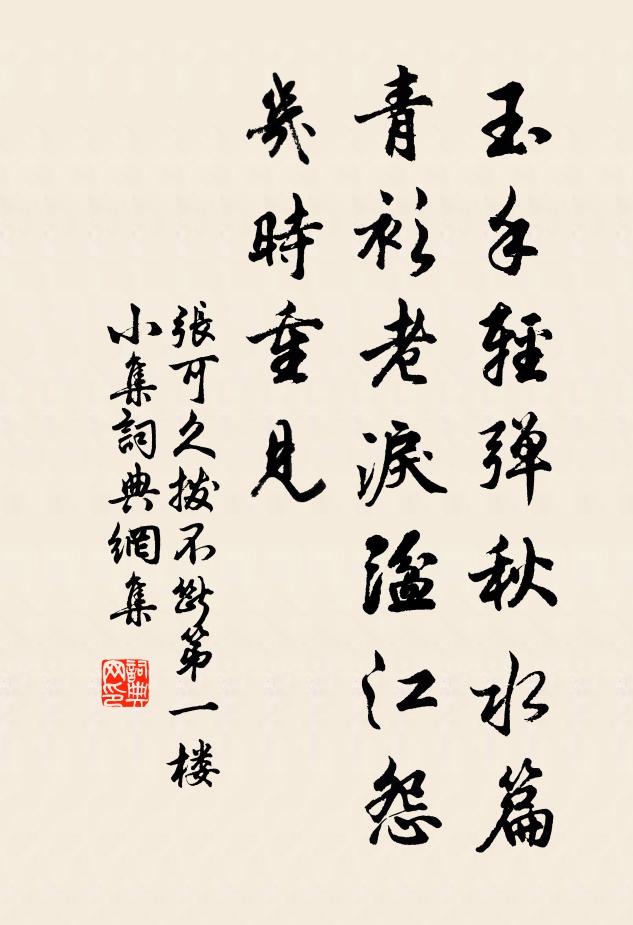 玉手輕弹秋水篇
青衫老淚湓江怨
幾時重見
張可久拨不斷第一楼
小集詞典網集
詞典网印